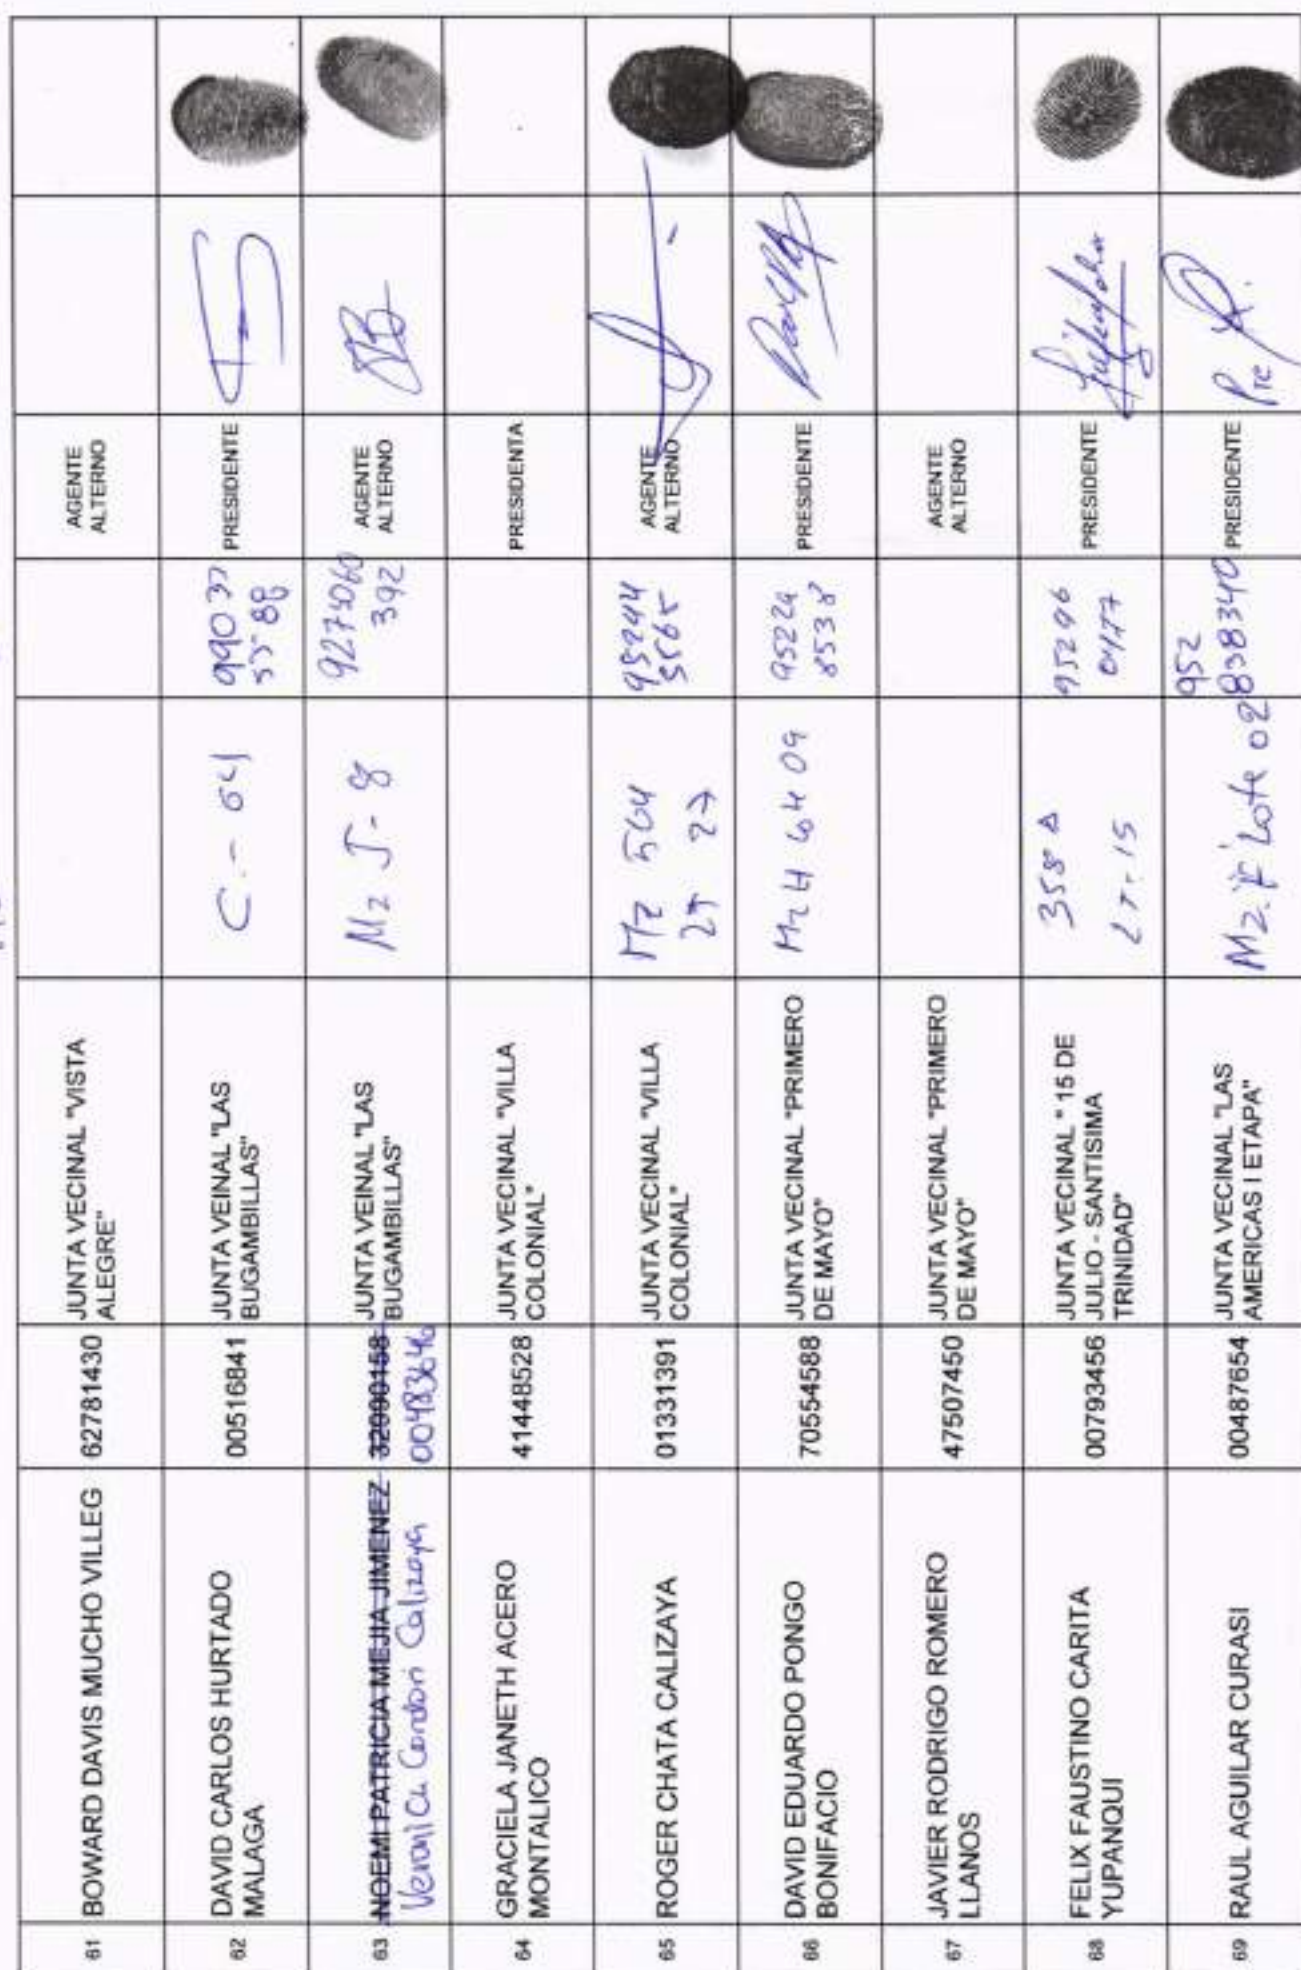 61
BOWARD DAVIS MUCHO VILLEG
62781430
JUNTA VECINAL "VISTA
ALEGRE"
AGENTE
ALTERNO
62
DAVID CARLOS HURTADO
MALAGA
00516841
JUNTA VEINAL "LAS
BUGAMBILLAS"
C.- 04
99037
5588
PRESIDENTE
63
NOEMI PATRICIA MEJIA JIMENEZ
Veronica Condori Calizaya
32090158
00483646
JUNTA VEINAL "LAS
BUGAMBILLAS"
Mz J- 8
92735060
392
AGENTE
ALTERNO
64
GRACIELA JANETH ACERO
MONTALICO
41448528
JUNTA VECINAL "VILLA
COLONIAL"
PRESIDENTA
65
ROGER CHATA CALIZAYA
01331391
JUNTA VECINAL "VILLA
COLONIAL"
Mz 504
27
95244
5565
AGENTE
ALTERNO
66
DAVID EDUARDO PONGO
BONIFACIO
70554588
JUNTA VECINAL "PRIMERO
DE MAYO"
Mz H Lote 09
95224
8538
PRESIDENTE
67
JAVIER RODRIGO ROMERO
LLANOS
47507450
JUNTA VECINAL "PRIMERO
DE MAYO"
AGENTE
ALTERNO
68
FELIX FAUSTINO CARITA
YUPANQUI
00793456
JUNTA VECINAL " 15 DE
JULIO - SANTISIMA
TRINIDAD"
358 A
LT-15
95296
0477
PRESIDENTE
69
RAUL AGUILAR CURASI
00487654
JUNTA VECINAL "LAS
AMERICAS I ETAPA"
Mz. F Lote 02
952
838340
PRESIDENTE